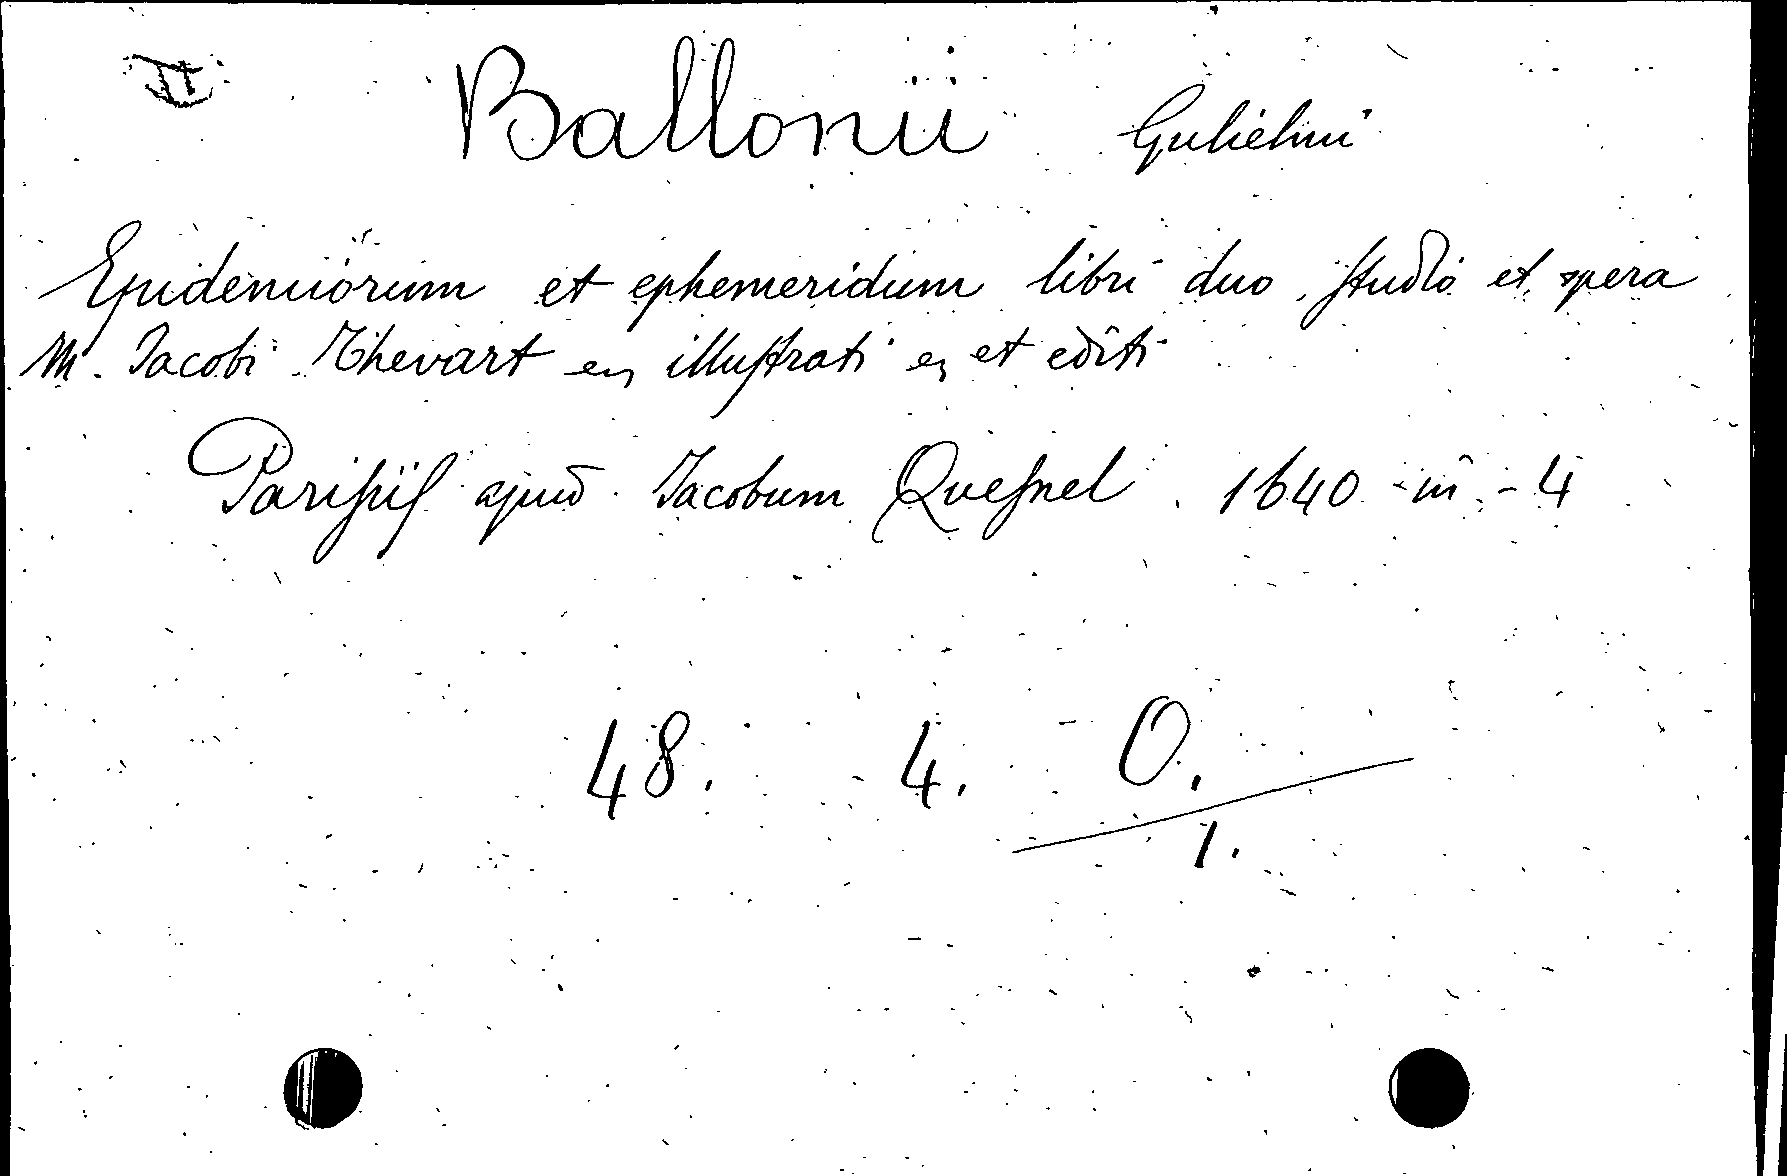 Ballonii Gulielmi
Epidemiorum et ephemeridum libri duo, ſtudio et opera
M. Jacobi Thevart en illuſtrati en et editi
Pariſiiſ apud Jacobum Queſnel. 1640 in - 4
48. 4. O.
1.